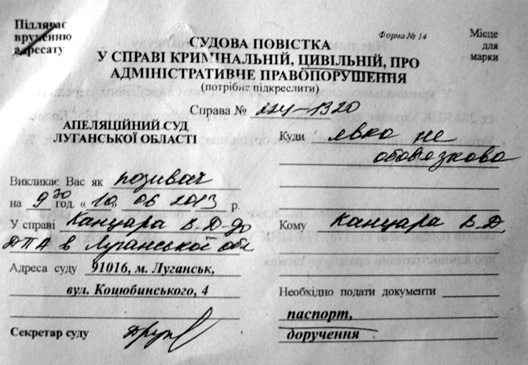 Підлягає
врученню
адресату
Форма № 14
Місце
для
марки
СУДОВА ПОВІСТКА
У СПРАВІ КРИМІНАЛЬНІЙ, ЦИВІЛЬНІЙ, ПРО
АДМІНІСТРАТИВНЕ ПРАВОПОРУШЕННЯ
(потрібне підкреслити)
Справа №
АПЕЛЯЦІЙНИЙ СУД
ЛУГАНСЬКОЇ ОБЛАСТІ
Викликає Вас як позивач
на 9 30 год. « 10 » 06 2013 р.
У справі Канцара В.Д. до
ДПА в Луганській обл
Адреса суду 91016, м. Луганськ,
вул. Коцюбинського, 4
Секретар суду
Куди явка не
обов'язкова
Кому Канцара В.Д
Необхідно подати документи
паспорт,
доручення